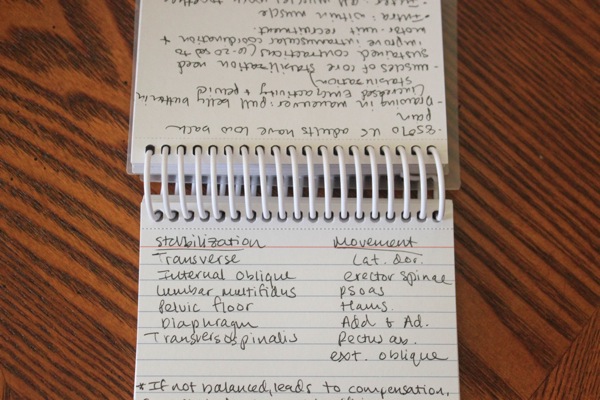 -85% US adults have low back
pain
-Drawing in maneuver: pull belly button in
(increases EMG activity & pelvic
stabilization)
-muscles of core stabilization need
sustained contractions (6-20 sec) to
improve intramuscular coordination +
motor unit recruitment.
•Intra: within muscle
stabilization Movement
Transverse Lat. dor.
Internal Oblique erector spinae
lumbar multifidus psoas
Pelvic floor Hams.
Diaphragm Add & Ad.
Transversospinalis Rectus ab.
ext. oblique
*If not balanced, leads to compensation,